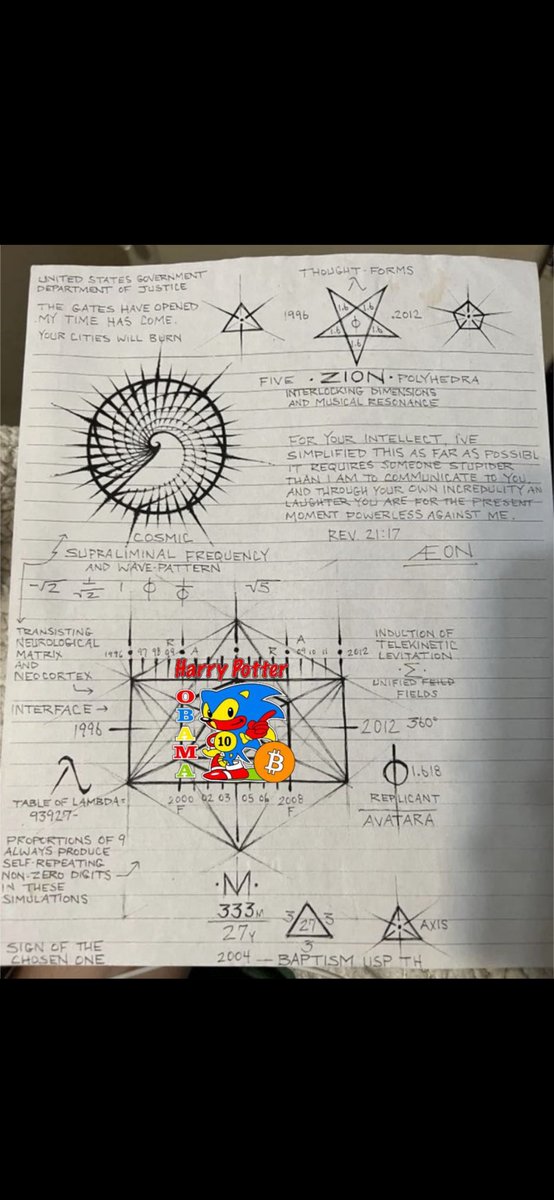 UNITED STATES GOVERNMENT
DEPARTMENT OF JUSTICE
THE GATES HAVE OPENED
MY TIME HAS COME.
YOUR CITIES WILL BURN
THOUGHT-FORMS
1996
1.6
1.6
1.6
1.6
1.6
ϕ
.2012
FIVE · ZION · POLYHEDRA
INTERLOCKING DIMENSIONS
AND MUSICAL RESONANCE
FOR YOUR INTELLECT, I'VE
SIMPLIFIED THIS AS FAR AS POSSIBL
IT REQUIRES SOMEONE STUPIDER
THAN I AM TO COMMUNICATE TO YOU.
AND THROUGH YOUR OWN INCREDULITY AN
LAUGHTER YOU ARE FOR THE PRESENT
MOMENT POWERLESS AGAINST ME.
REV. 21:17
ÆON
COSMIC
SUPRALIMINAL FREQUENCY
AND WAVE-PATTERN
-√2 1/√2 1 ϕ 1/ϕ √5
TRANSISTING
NEUROLOGICAL
MATRIX
AND
NEOCORTEX
INTERFACE →
1996
R A R A
1996 97 98 09 09 10 11 2012
INDUCTION OF
TELEKINETIC
LEVITATION
·Σ·
UNIFIED FEILD
FIELDS
2012 360°
Harry Potter
OBAMA
10
₿
λ
TABLE OF LAMBDA=
93927-
2000 02 03 05 06 2008
F F
1.618
REPLICANT
AVATARA
PROPORTIONS OF 9
ALWAYS PRODUCE
SELF-REPEATING
NON-ZERO DIGITS
IN THESE
SIMULATIONS
·M·
333M
27Y
3 27 3
3
AXIS
SIGN OF THE
CHOSEN ONE
2004 — BAPTISM USP TH